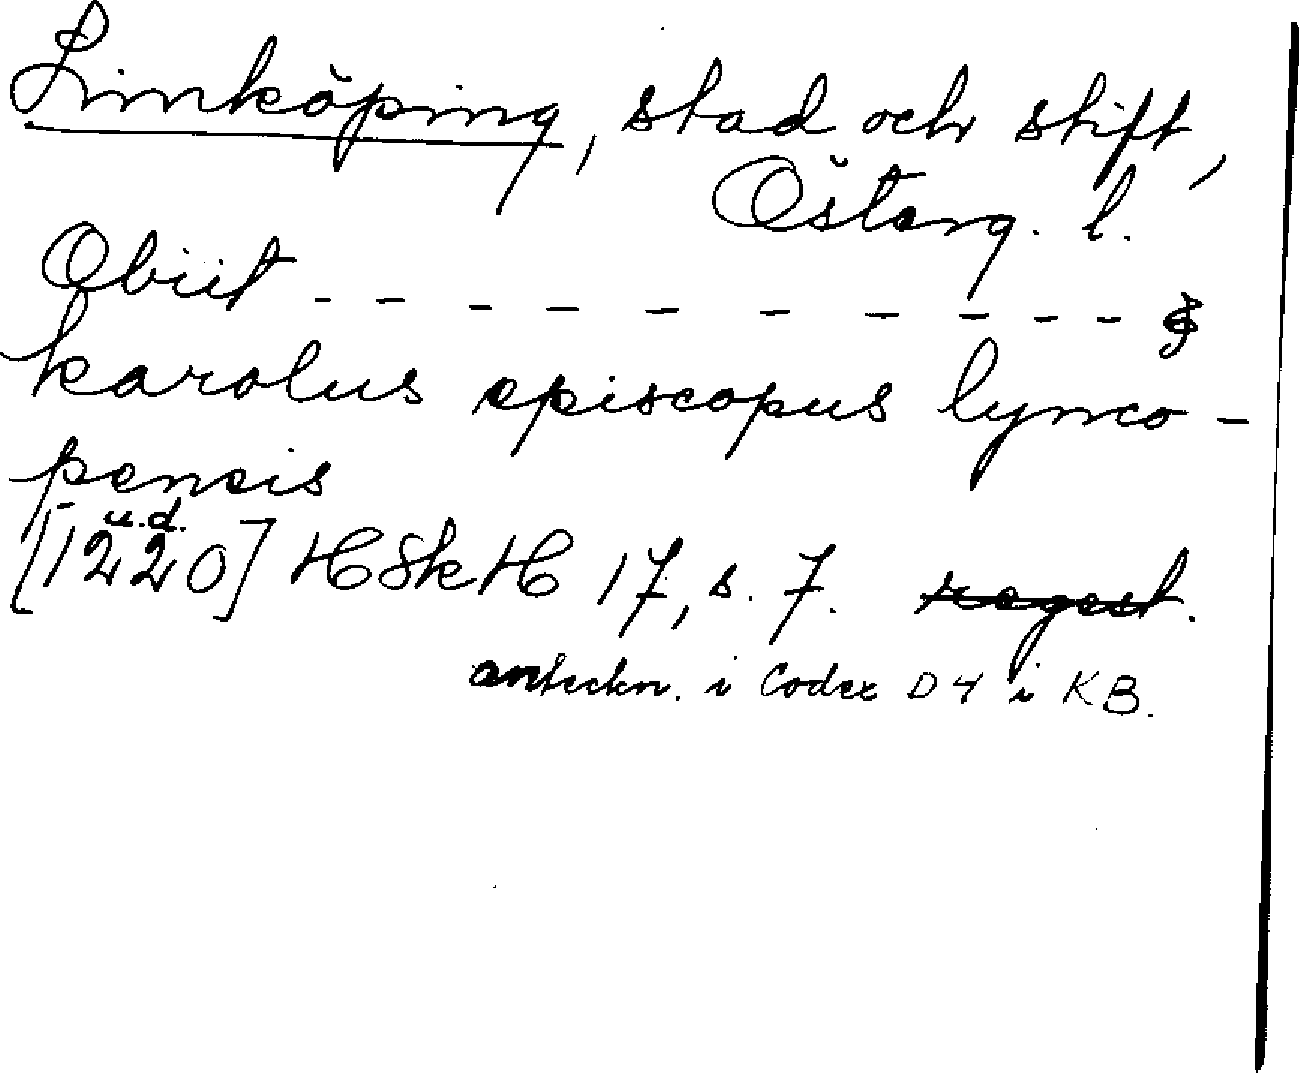 Linköping, stad och stift,
Österg. l.
Obiit - - - - - - - - - - -
karolus episcopus lynco-
pensis
u.d.
[1220] HSkH 17, s. 7. regest.
anteckn. i Codex D 4 i KB.